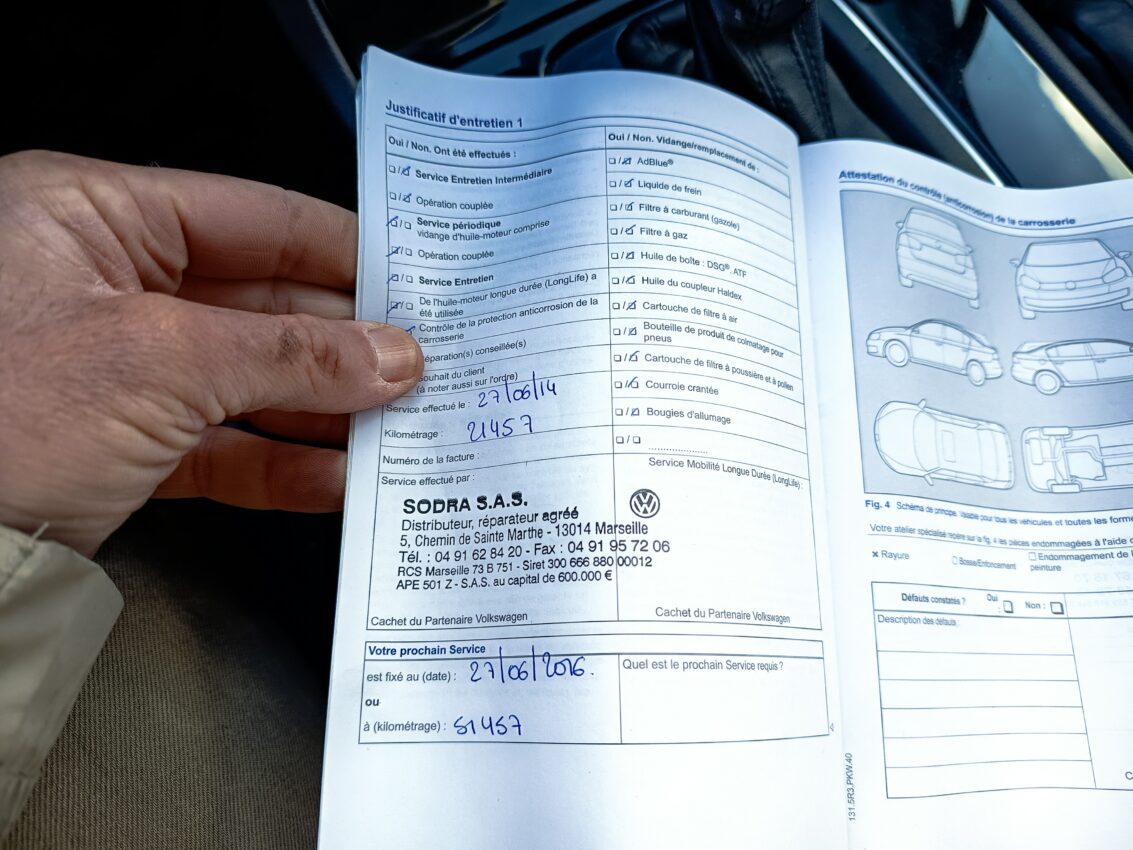 Justificatif d'entretien 1
Oui / Non. Ont été effectués :
Service Entretien Intermédiaire
Opération couplée
Service périodique
vidange d'huile-moteur comprise
Opération couplée
Service Entretien
De l'huile-moteur longue durée (LongLife) a
été utilisée
Contrôle de la protection anticorrosion de la
carrosserie
éparation(s) conseillée(s)
ouhait du client
(à noter aussi sur l'ordre)
Service effectué le : 27/06/14
Kilométrage : 21457
Numéro de la facture :
Service effectué par :
SODRA S.A.S.
Distributeur, réparateur agréé
5, Chemin de Sainte Marthe - 13014 Marseille
Tél. : 04 91 62 84 20 - Fax : 04 91 95 72 06
RCS Marseille 73 B 751 - Siret 300 666 880 00012
APE 501 Z - S.A.S. au capital de 600.000 €
Cachet du Partenaire Volkswagen
Oui / Non. Vidange/remplacement de :
AdBlue®
Liquide de frein
Filtre à carburant (gazole)
Filtre à gaz
Huile de boîte : DSG®, ATF
Huile du coupleur Haldex
Cartouche de filtre à air
Bouteille de produit de colmatage pour
pneus
Cartouche de filtre à poussière et à pollen
Courroie crantée
Bougies d'allumage
Service Mobilité Longue Durée (LongLife) :
Cachet du Partenaire Volkswagen
Votre prochain Service
est fixé au (date) : 27/06/2016.
ou
à (kilométrage) : 51457
Quel est le prochain Service requis ?
Attestation du contrôle (anticorrosion) de la carrosserie
Fig. 4 Schéma de principe. Valable pour tous les véhicules et toutes les forme
Votre atelier spécialisé repère sur la fig. 4 les pièces endommagées à l'aide
x Rayure
Bosse/Enfoncement
Endommagement de
peinture
Défauts constatés ? Oui : Non :
Description des défauts :
131.5R3.PKW.40